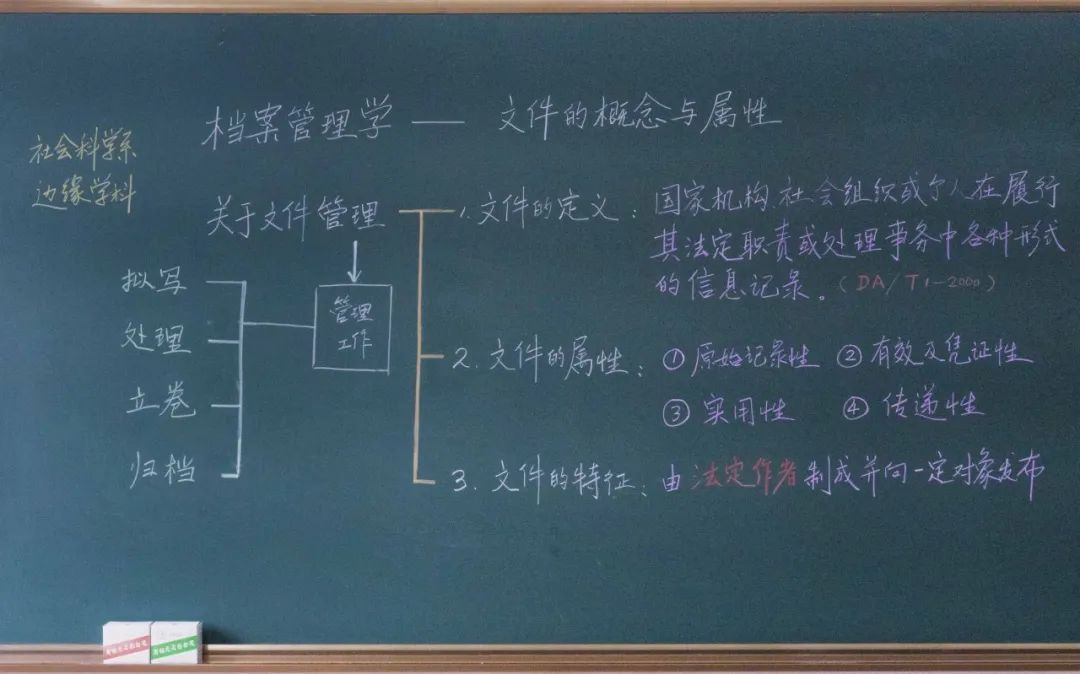 档案管理学 — 文件的概念与属性
社会科学系
边缘学科
关于文件管理
管理
工作
拟写
处理
立卷
归档
1. 文件的定义：国家机构、社会组织或个人在履行
其法定职责或处理事务中各种形式
的信息记录。（DA/T 1-2000）
2. 文件的属性：① 原始记录性 ② 有效及凭证性
③ 实用性 ④ 传递性
3. 文件的特征：由法定作者制成并向一定对象发布